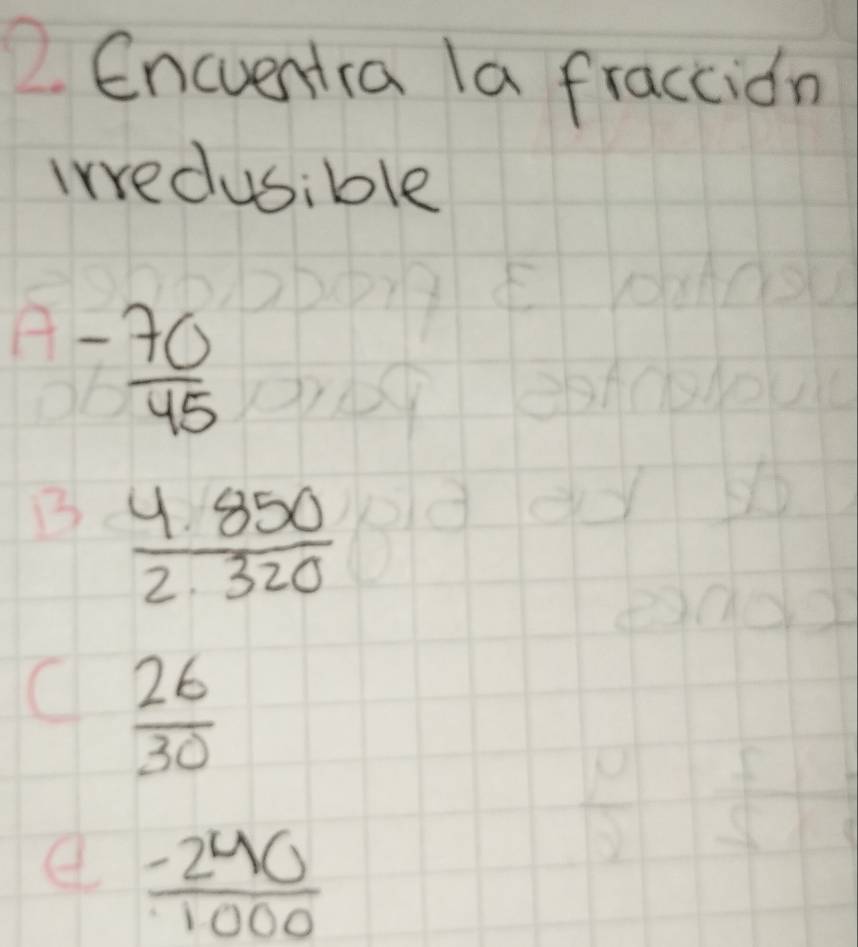 2. Encuentra la fracción
irredusible
A -70
45
B 4.850
2.320
C 26
30
e -240
1000